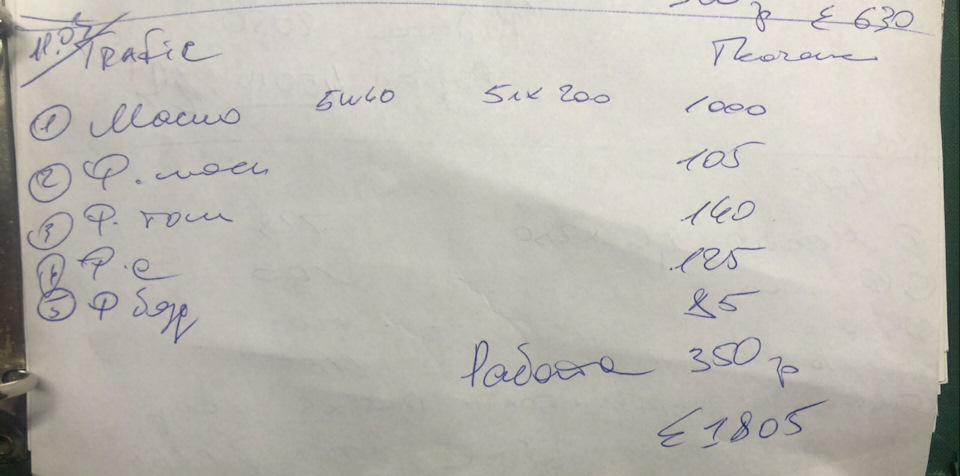 Σ 630
11.07 Trafic Ткачик
① Масло 5w40 5л x 200 1000
② Ф. масл 105
③ Ф. топл 140
④ Ф. с 125
⑤ Ф бздр 85
Работа 350 гр
Σ 1805